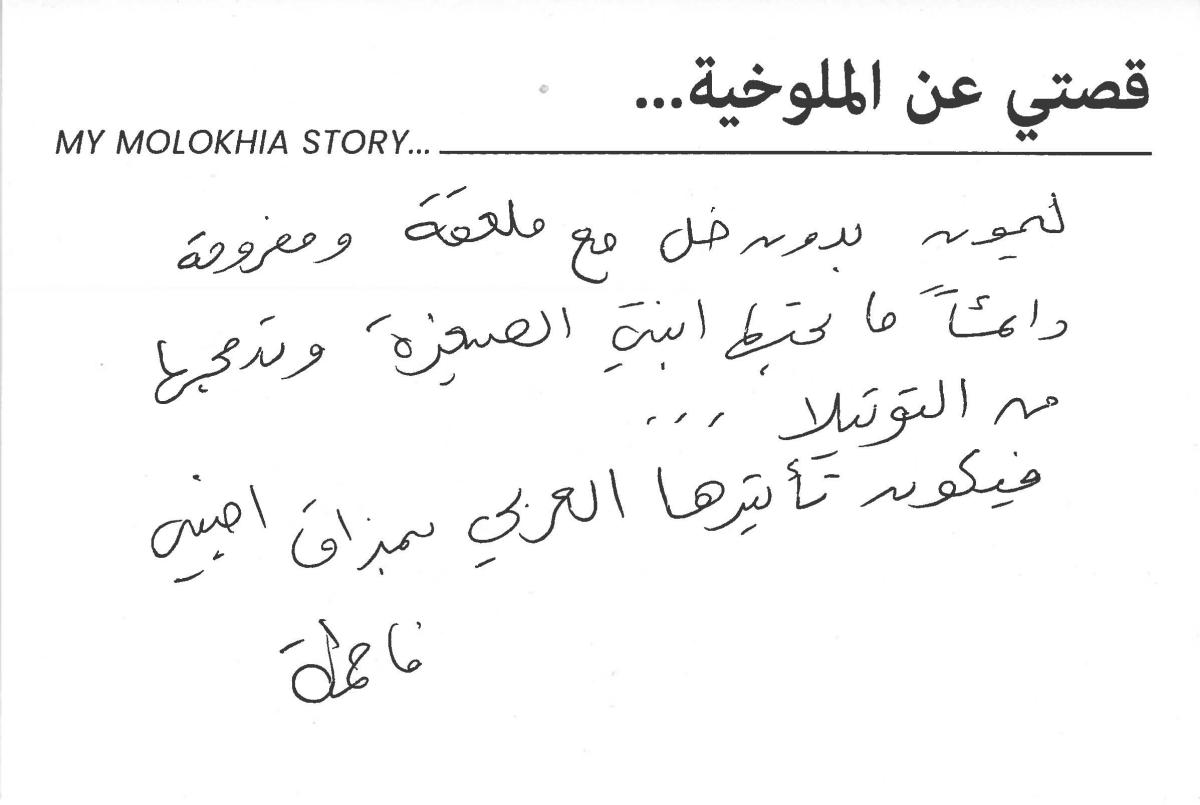 قصتي عن الملوخية...
MY MOLOKHIA STORY...
ليمون بدون خل مع ملعقة ومفرومة
دائماً ما تحبط ابنتي الصغيرة وتدمجها
من التوتيلا ...
فيكون تأثيرها العربي بمذاق اجنبي